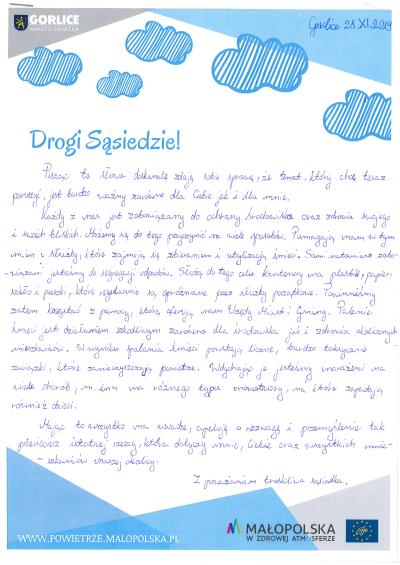 GORLICE
MIASTO ŚWIATŁA
Gorlice 28.XI.2019
Drogi Sąsiedzie!
Pisząc te słowa doskonale zdaję sobie sprawę, że temat, który chcę teraz
poruszyć, jest bardzo ważny zarówno dla Ciebie jak i dla mnie.
Każdy z nas jest zobowiązany do ochrony środowiska oraz zdrowia swojego
i swoich bliskich. Możemy się do tego przyczynić na wiele sposobów. Pomagają nam w tym
m.in. służby, które zajmują się zbieraniem i utylizacją śmieci. Sami natomiast zobo-
wiązani jesteśmy do segregacji odpadów. Służą do tego celu kontenery na plastik, papier,
szkło i puszki, które regularnie są opróżniane przez służby porządkowe. Powinniśmy
zatem korzystać z pomocy, którą oferują nam Urzędy Miast i Gminy. Palenie
śmieci jest działaniem szkodliwym zarówno dla środowiska jak i zdrowia okolicznych
mieszkańców. W wyniku spalania śmieci powstają liczne, bardzo toksyczne
związki, które zanieczyszczają powietrze. Wdychając je jesteśmy narażeni na
wiele chorób, m.inn na różnego typu nowotwory, na które zapadają
również dzieci.
Mając to wszystko na uwadze, apeluję o rozwagę i przemyślenie tak
istotnej rzeczy, która dotyczy mnie, Ciebie oraz wszystkich miesz-
-szkańców naszej okolicy.
Z poważaniem troskliwa sąsiadka.
WWW.POWIETRZE.MALOPOLSKA.PL
MAŁOPOLSKA
W ZDROWEJ ATMOSFERZE
life